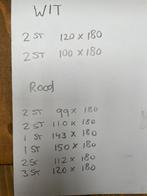 WIT
2 ST 120 x 180
2 ST 100 x 180
Rood
2 ST 99 x 180
2 ST 110 x 180
1 ST 143 x 180
1 ST 150 x 180
2 St 112 x 180
3 ST 120 x 180